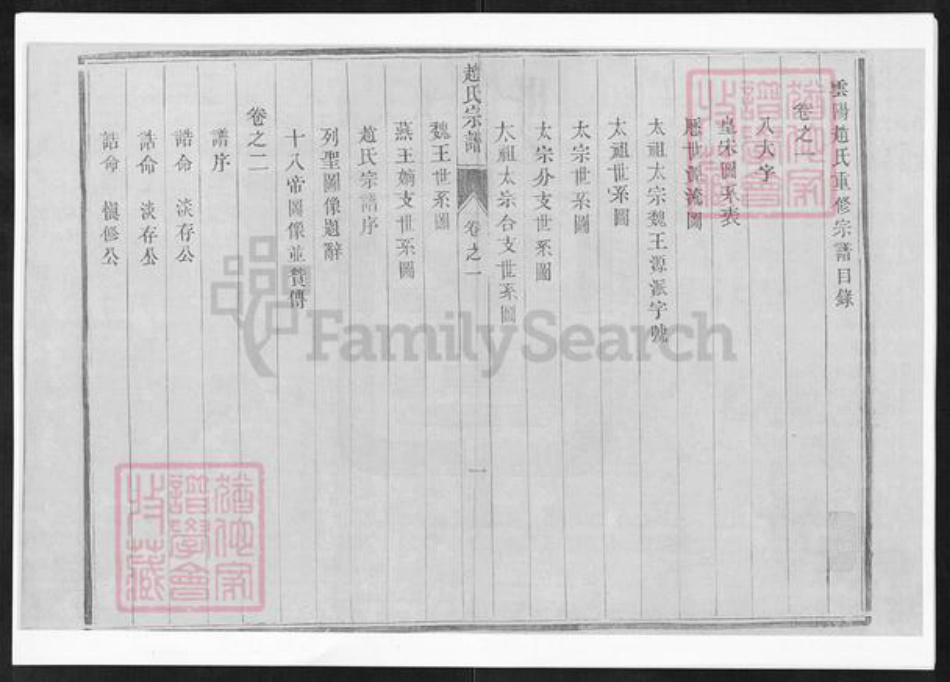 雲陽趙氏重修宗譜目錄
卷之一
八大字
皇宋圖系表
歷世源流圖
太祖太宗魏王源派字號
太祖世系圖
太宗世系圖
太宗分支世系圖
太祖太宗合支世系圖
趙氏宗譜
卷之一
一
魏王世系圖
燕王嫡支世系圖
趙氏宗譜序
列聖圖像題辭
十八帝圖像並贊傳
卷之二
譜序
誥命 淡存公
誥命 淡存公
誥命 慎修公
FamilySearch
譜學會
收藏
譜學會
收藏